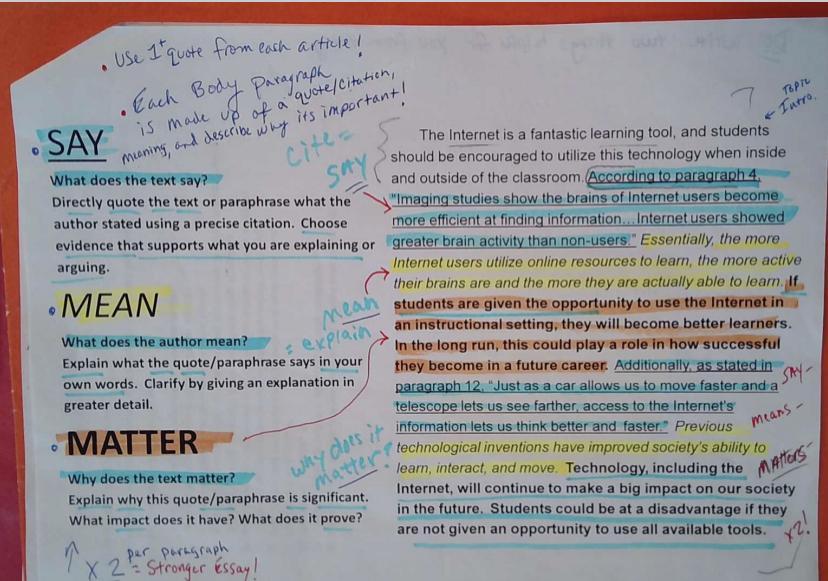 • Use 1+ quote from each article!
• Each Body Paragraph
is made up of a quote/citation,
meaning, and describe why its important!
• SAY
What does the text say?
Directly quote the text or paraphrase what the
author stated using a precise citation. Choose
evidence that supports what you are explaining or
arguing.
• MEAN
What does the author mean?
Explain what the quote/paraphrase says in your
own words. Clarify by giving an explanation in
greater detail.
• MATTER
Why does the text matter?
Explain why this quote/paraphrase is significant.
What impact does it have? What does it prove?
↑ X 2 per paragraph
= Stronger Essay!
cite =
SAY
mean
= explain
why does it
matter?
The Internet is a fantastic learning tool, and students
should be encouraged to utilize this technology when inside
and outside of the classroom. According to paragraph 4,
"Imaging studies show the brains of Internet users become
more efficient at finding information... Internet users showed
greater brain activity than non-users." Essentially, the more
Internet users utilize online resources to learn, the more active
their brains are and the more they are actually able to learn. If
students are given the opportunity to use the Internet in
an instructional setting, they will become better learners.
In the long run, this could play a role in how successful
they become in a future career. Additionally, as stated in
paragraph 12, "Just as a car allows us to move faster and a
telescope lets us see farther, access to the Internet's
information lets us think better and faster." Previous
technological inventions have improved society's ability to
learn, interact, and move. Technology, including the
Internet, will continue to make a big impact on our society
in the future. Students could be at a disadvantage if they
are not given an opportunity to use all available tools.
← Topic
Intro.
SAY-
means-
MAtters-
x2!